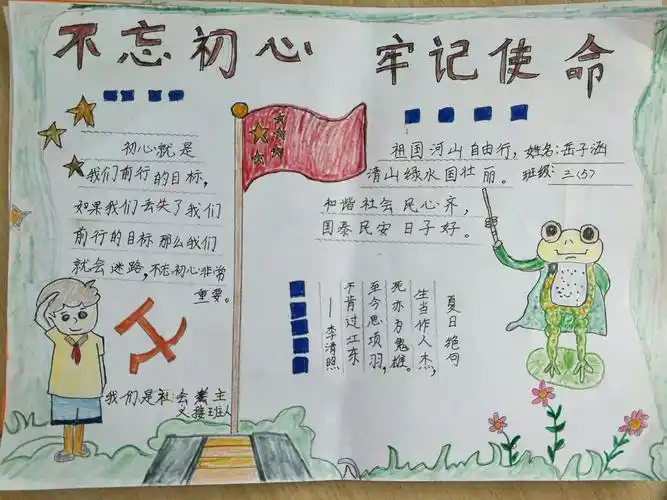 不忘初心 牢记使命
初心就是
我们前行的目标,
如果我们丢失了我们
前行的目标那么我们
就会迷路,不忘初心非常
重要。
我们是社会主
义接班人
祖国河山自由行,
清山绿水国壮丽。
和谐社会民心齐,
国泰民安日子好。
姓名:岳子涵
班级:三<5>
夏日绝句
生当作人杰,
死亦为鬼雄。
至今思项羽,
不肯过江东
——李清照